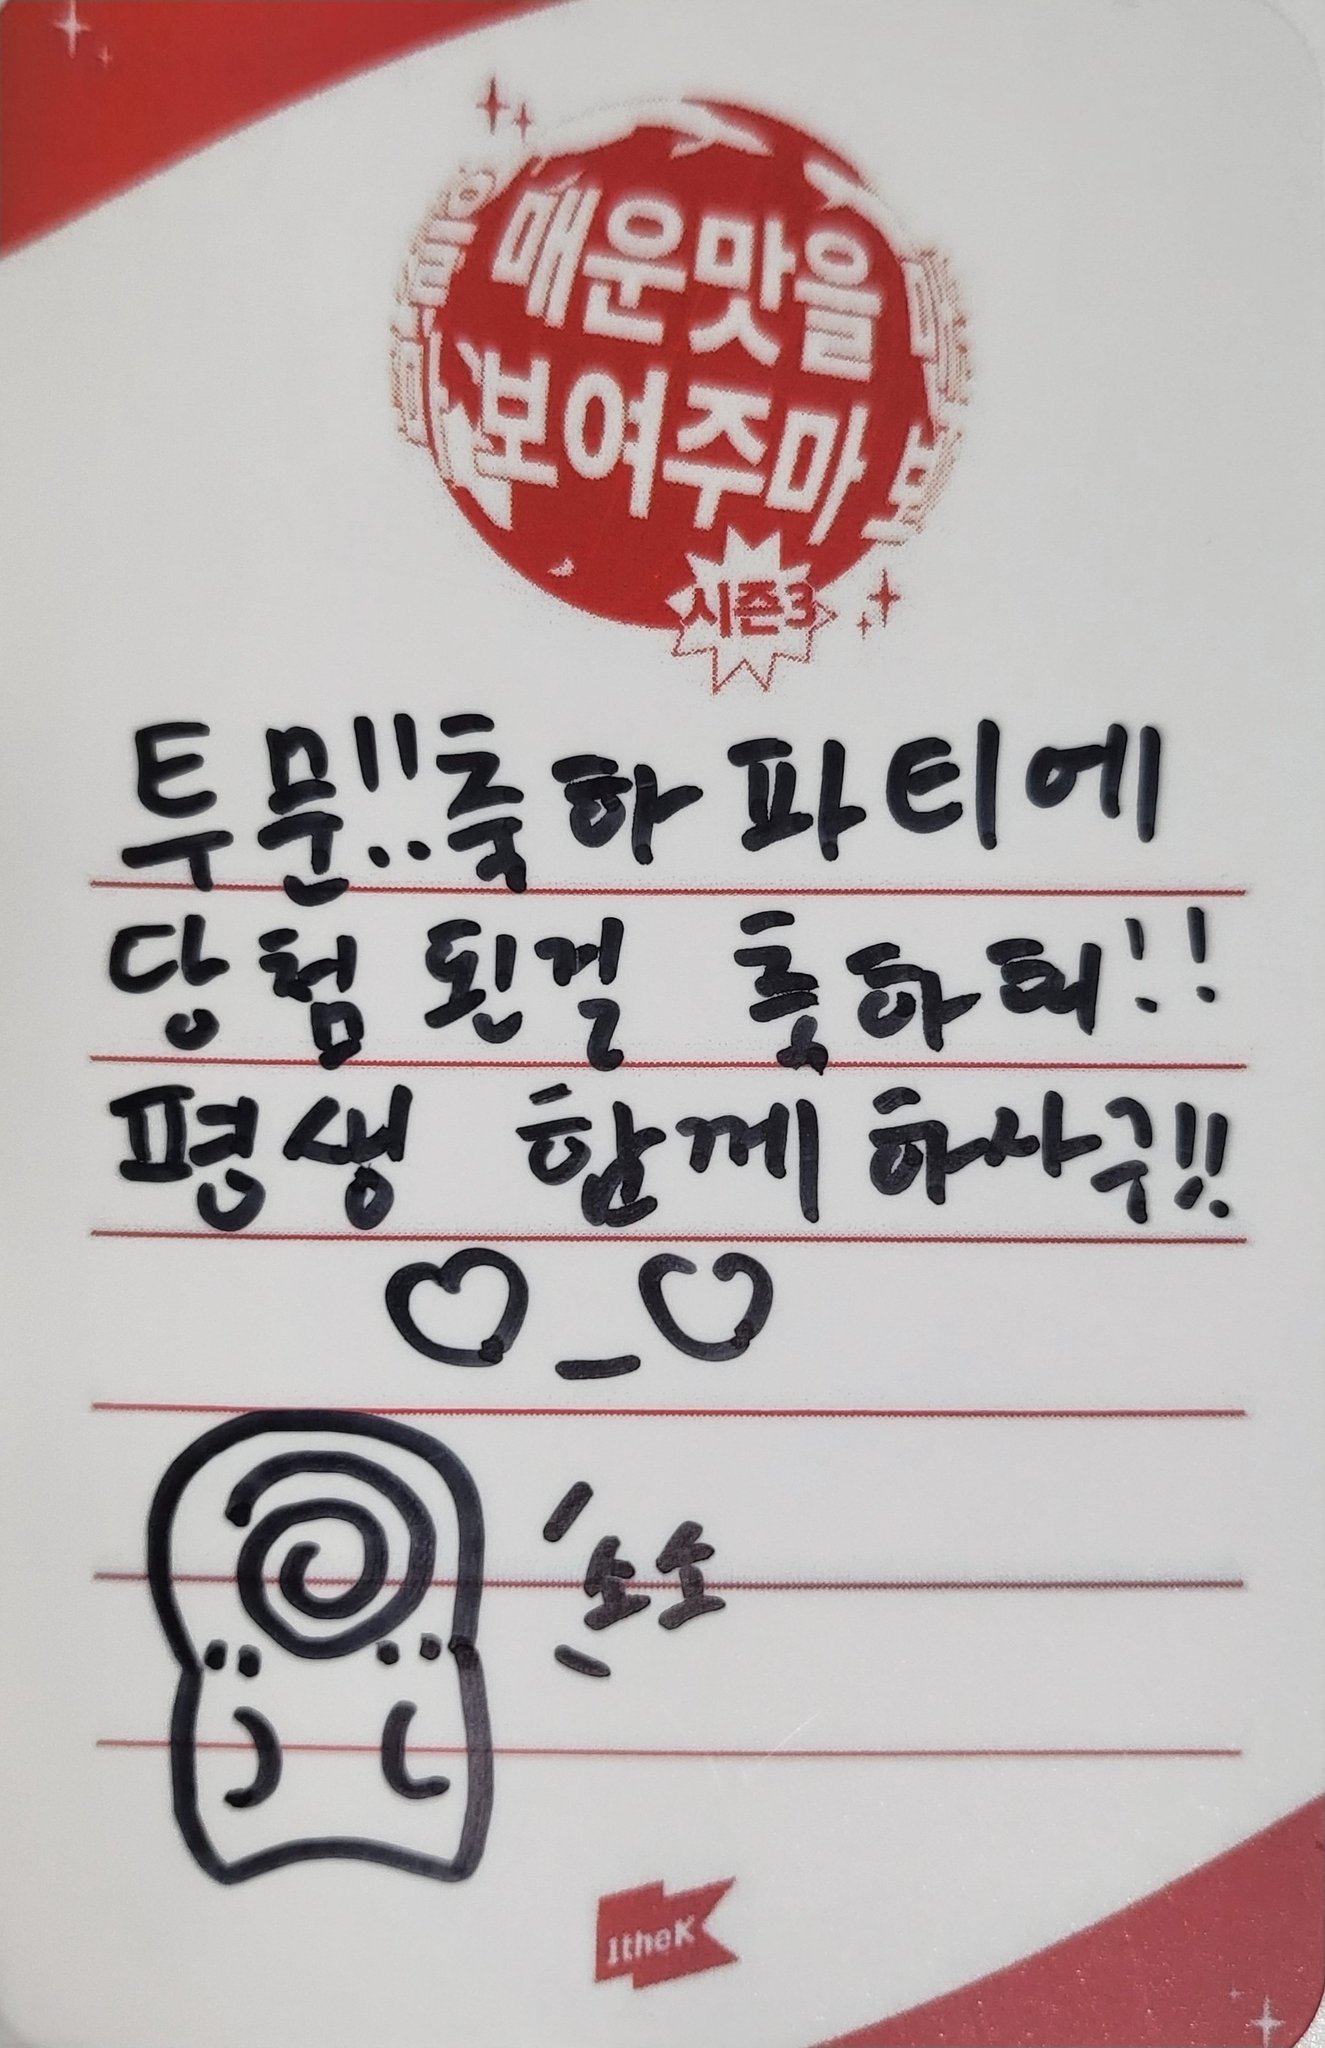 매운맛을
보여주마
시즌3
투문!! 축하 파티에
당첨 된걸 축하해!!
평생 함께 하사구!!
♡_♡
소소
1theK